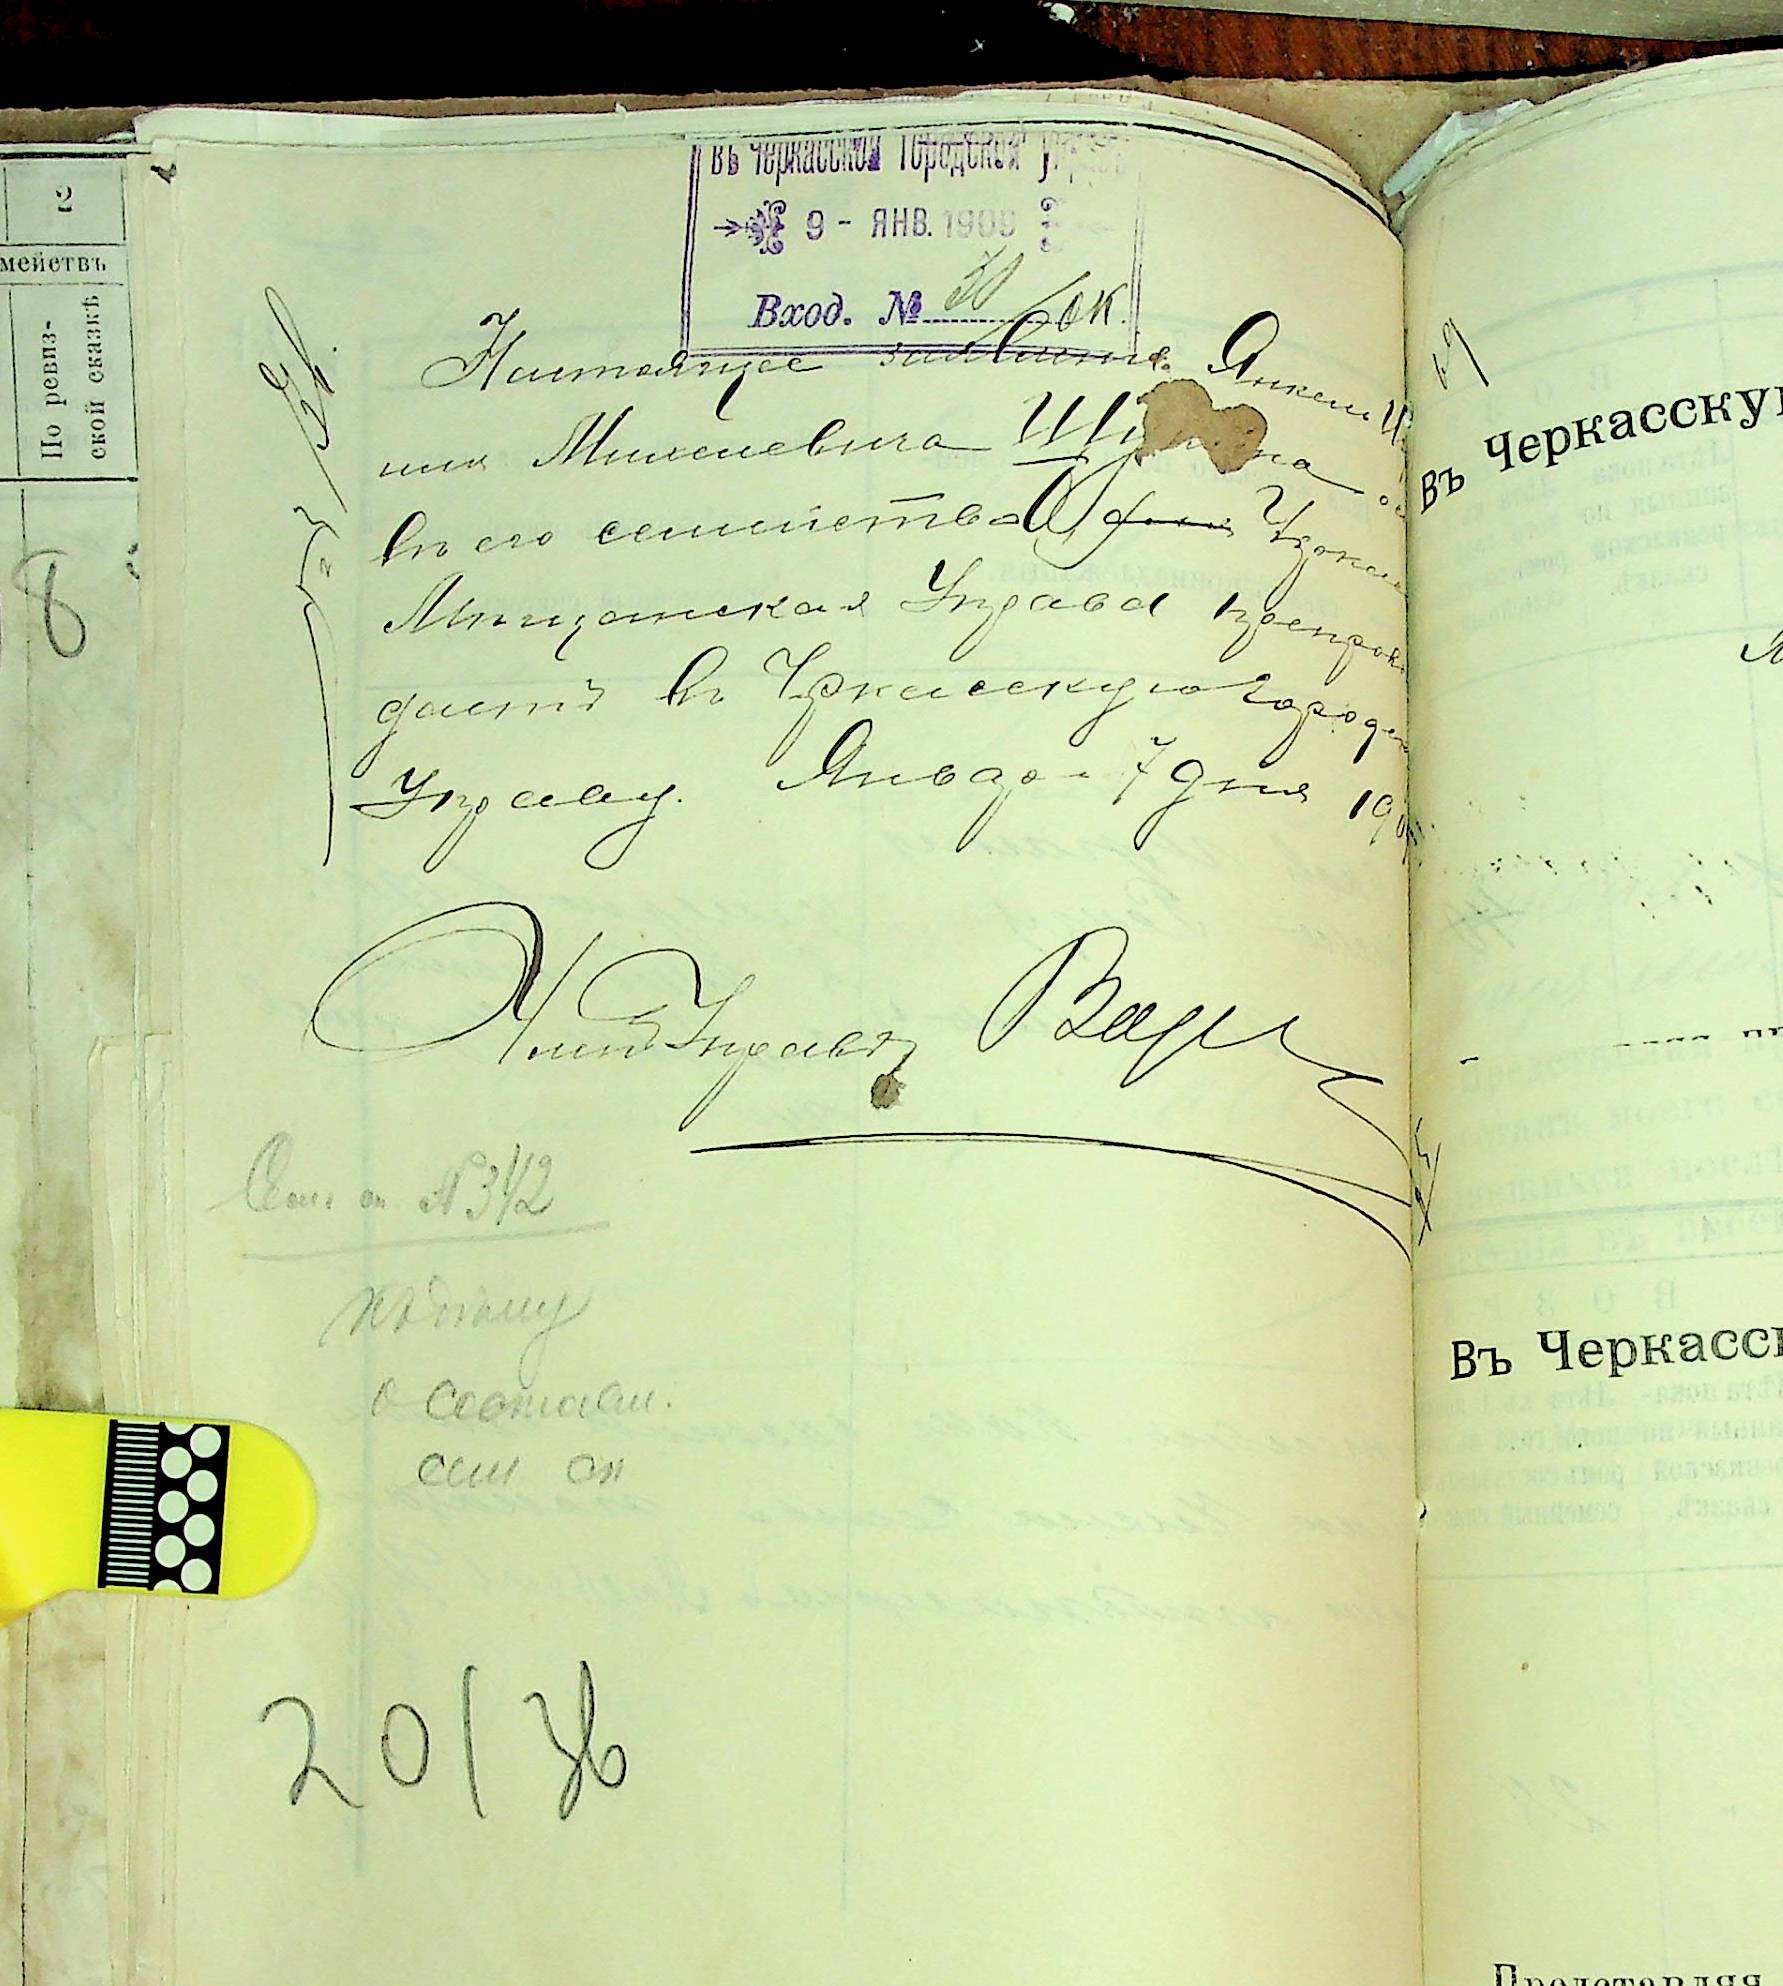 2
мействъ
По ревиз-
ской сказкѣ
8
Въ Черкасской Городской Управѣ
9 - ЯНВ. 1909
Вход. № 30/ок.
Настоящее заявленіе Янкеля
Мишлевича
въ его семейства Черкас
Мѣщанская Управа препрово
даетъ въ Черкасскую Городск
Управу. Января 7 дня 190
Членъ Управы
Сем. сп. №342
къ дѣлу
о составл.
сем сп
20/36
69
Въ Черкасскую
Въ Черкасс
Представляя